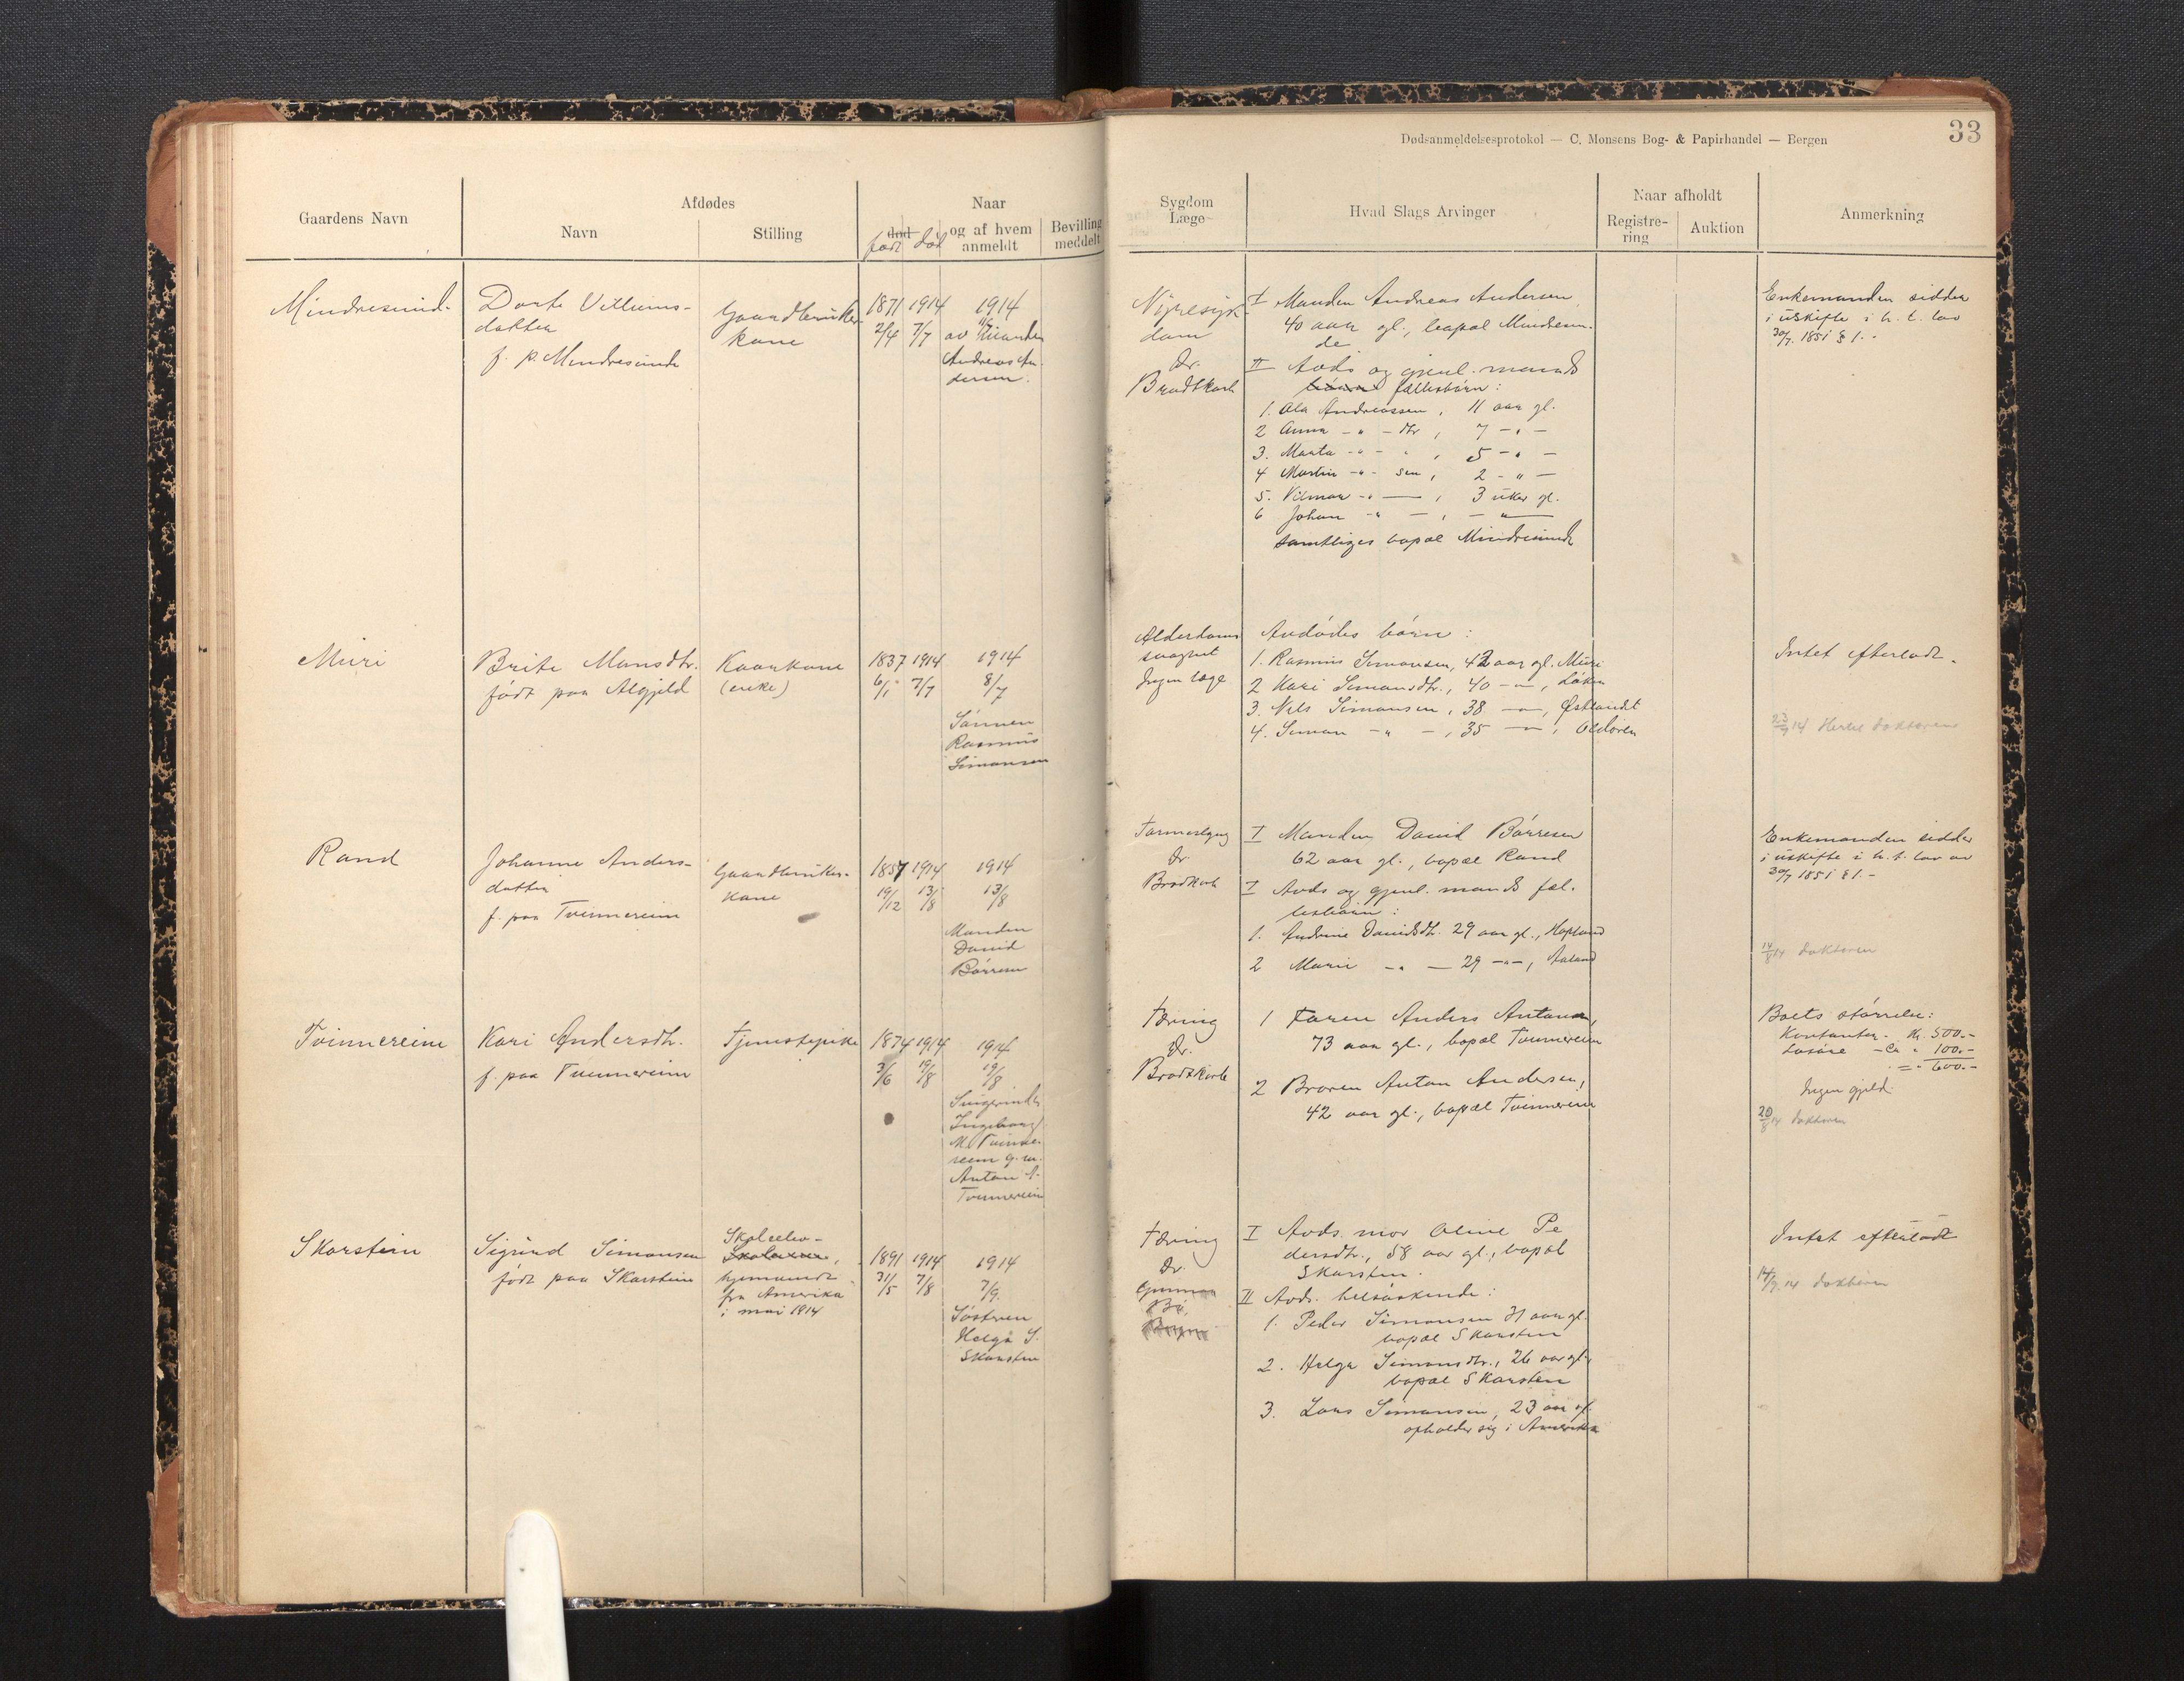 Dødsanmeldelsesprotokol — C. Monsens Bog- & Papirhandel — Bergen
33
Gaardens Navn
Afdødes
Navn
Stilling
Naar
død
født død
og af hvem
anmeldt
Bevilling
meddelt
Sygdom
Læge
Hvad Slags Arvinger
Naar afholdt
Registre-
ring
Auktion
Anmerkning
Mindresund-
Dorte Villums-
datter
f. p. Mindresunde
Gaardbruker
kone
1871 1914 1914
2/4 7/7
av Manden
Andreas An-
dersen.
Nyresyk-
dom
Dr.
Brodtkorb
I Manden Andreas Andersen
40 aar gl., bopæl Mindresun-
de
II Avds og gjenl. mands
børn fællesbørn:
1. Ola Andreassen, 11 aar gl.
2 Anna -"- dtr, 7 -"-
3. Marta -"- " , 5 -"-
4 Martin -"- sen, 2 -"-
5. Vilmar -"- — , 3 uker gl.
6 Johan -"- — , — " —
samtliges bopæl Mindresunde
Enkemanden sidder
i uskifte i h. t. lov
30/7 1851 § 1.-
Muri
Brite Monsdtr.
født paa Algjeld
Kaarkone
(enke)
1837 1914 1914
6/1 7/7 8/7
Sønnen
Rasmus
Simonsen
Alderdoms
svaghet
Ingen læge
Avdødes børn:
1. Rasmus Simonsen, 42 aar gl. Muri
2 Kari Simonsdtr., 40 -"-, Løken
3. Nils Simonsen, 38 -"-, Østlandet
4. Simon -"- , 35 -"-, Oldøren
Intet efterladt.
Rand
Johanne Anders-
datter
f. paa Tvinnereim
Gaardbruker-
kone
1857 1914 1914
19/12 13/8 13/8
Manden
David
Børresen
Dr.
Brodtkorb
I Manden David Børresen
62 aar gl., bopæl Rand
I Avds og gjenl. mands fæl-
lesbørn:
1. Andrine Davidsdtr. 29 aar gl., Hopland
2 Marie -"- — 29 -"-, Aaland
Enkemanden sidder
i uskifte i h. t. lov av
30/7 1851 § 1.-
14/8 14 doktoren
Tvinnereim
Kari Andersdtr.
f. paa Tvinnereim
Tjenestepike
1874 1914 1914
3/6 19/8 19/8
Svigerinden
Ingeborg
M. Tvinne-
reim g. m.
Anton A.
Tvinnereim
Tæring
Dr.
Brodtkorb
1 Faren Anders Antonsen,
73 aar gl., bopæl Tvinnereim
2 Broren Anton Andersen,
42 aar gl., bopæl Tvinnereim
Boets størrelse:
Kontanter - Kr. 500.-
Løsøre - Ca " 100.-
= " 600.-
Ingen gjeld
20/8 14 doktoren
Skarstein
Sigurd Simonsen
født paa Skarstein
Skoleelev-
hjemvendt
fra Amerika
i mai 1914
1891 1914 1914
31/5 7/8 7/9.
Søsteren
Helga S.
Skarsten
Tæring
Dr.
I Avds. mor Oline Pe
dersdtr., 58 aar gl., bopæl
Skarsten.
II Avds. helsøskende:
1. Peder Simonsen 31 aar gl.
bopæl Skarsten
2. Helga Simonsdtr., 26 aar gl.,
bopæl Skarsten
3. Lars Simonsen, 23 aar gl.
opholder sig i Amerika
Intet efterladt
14/9 14 doktoren